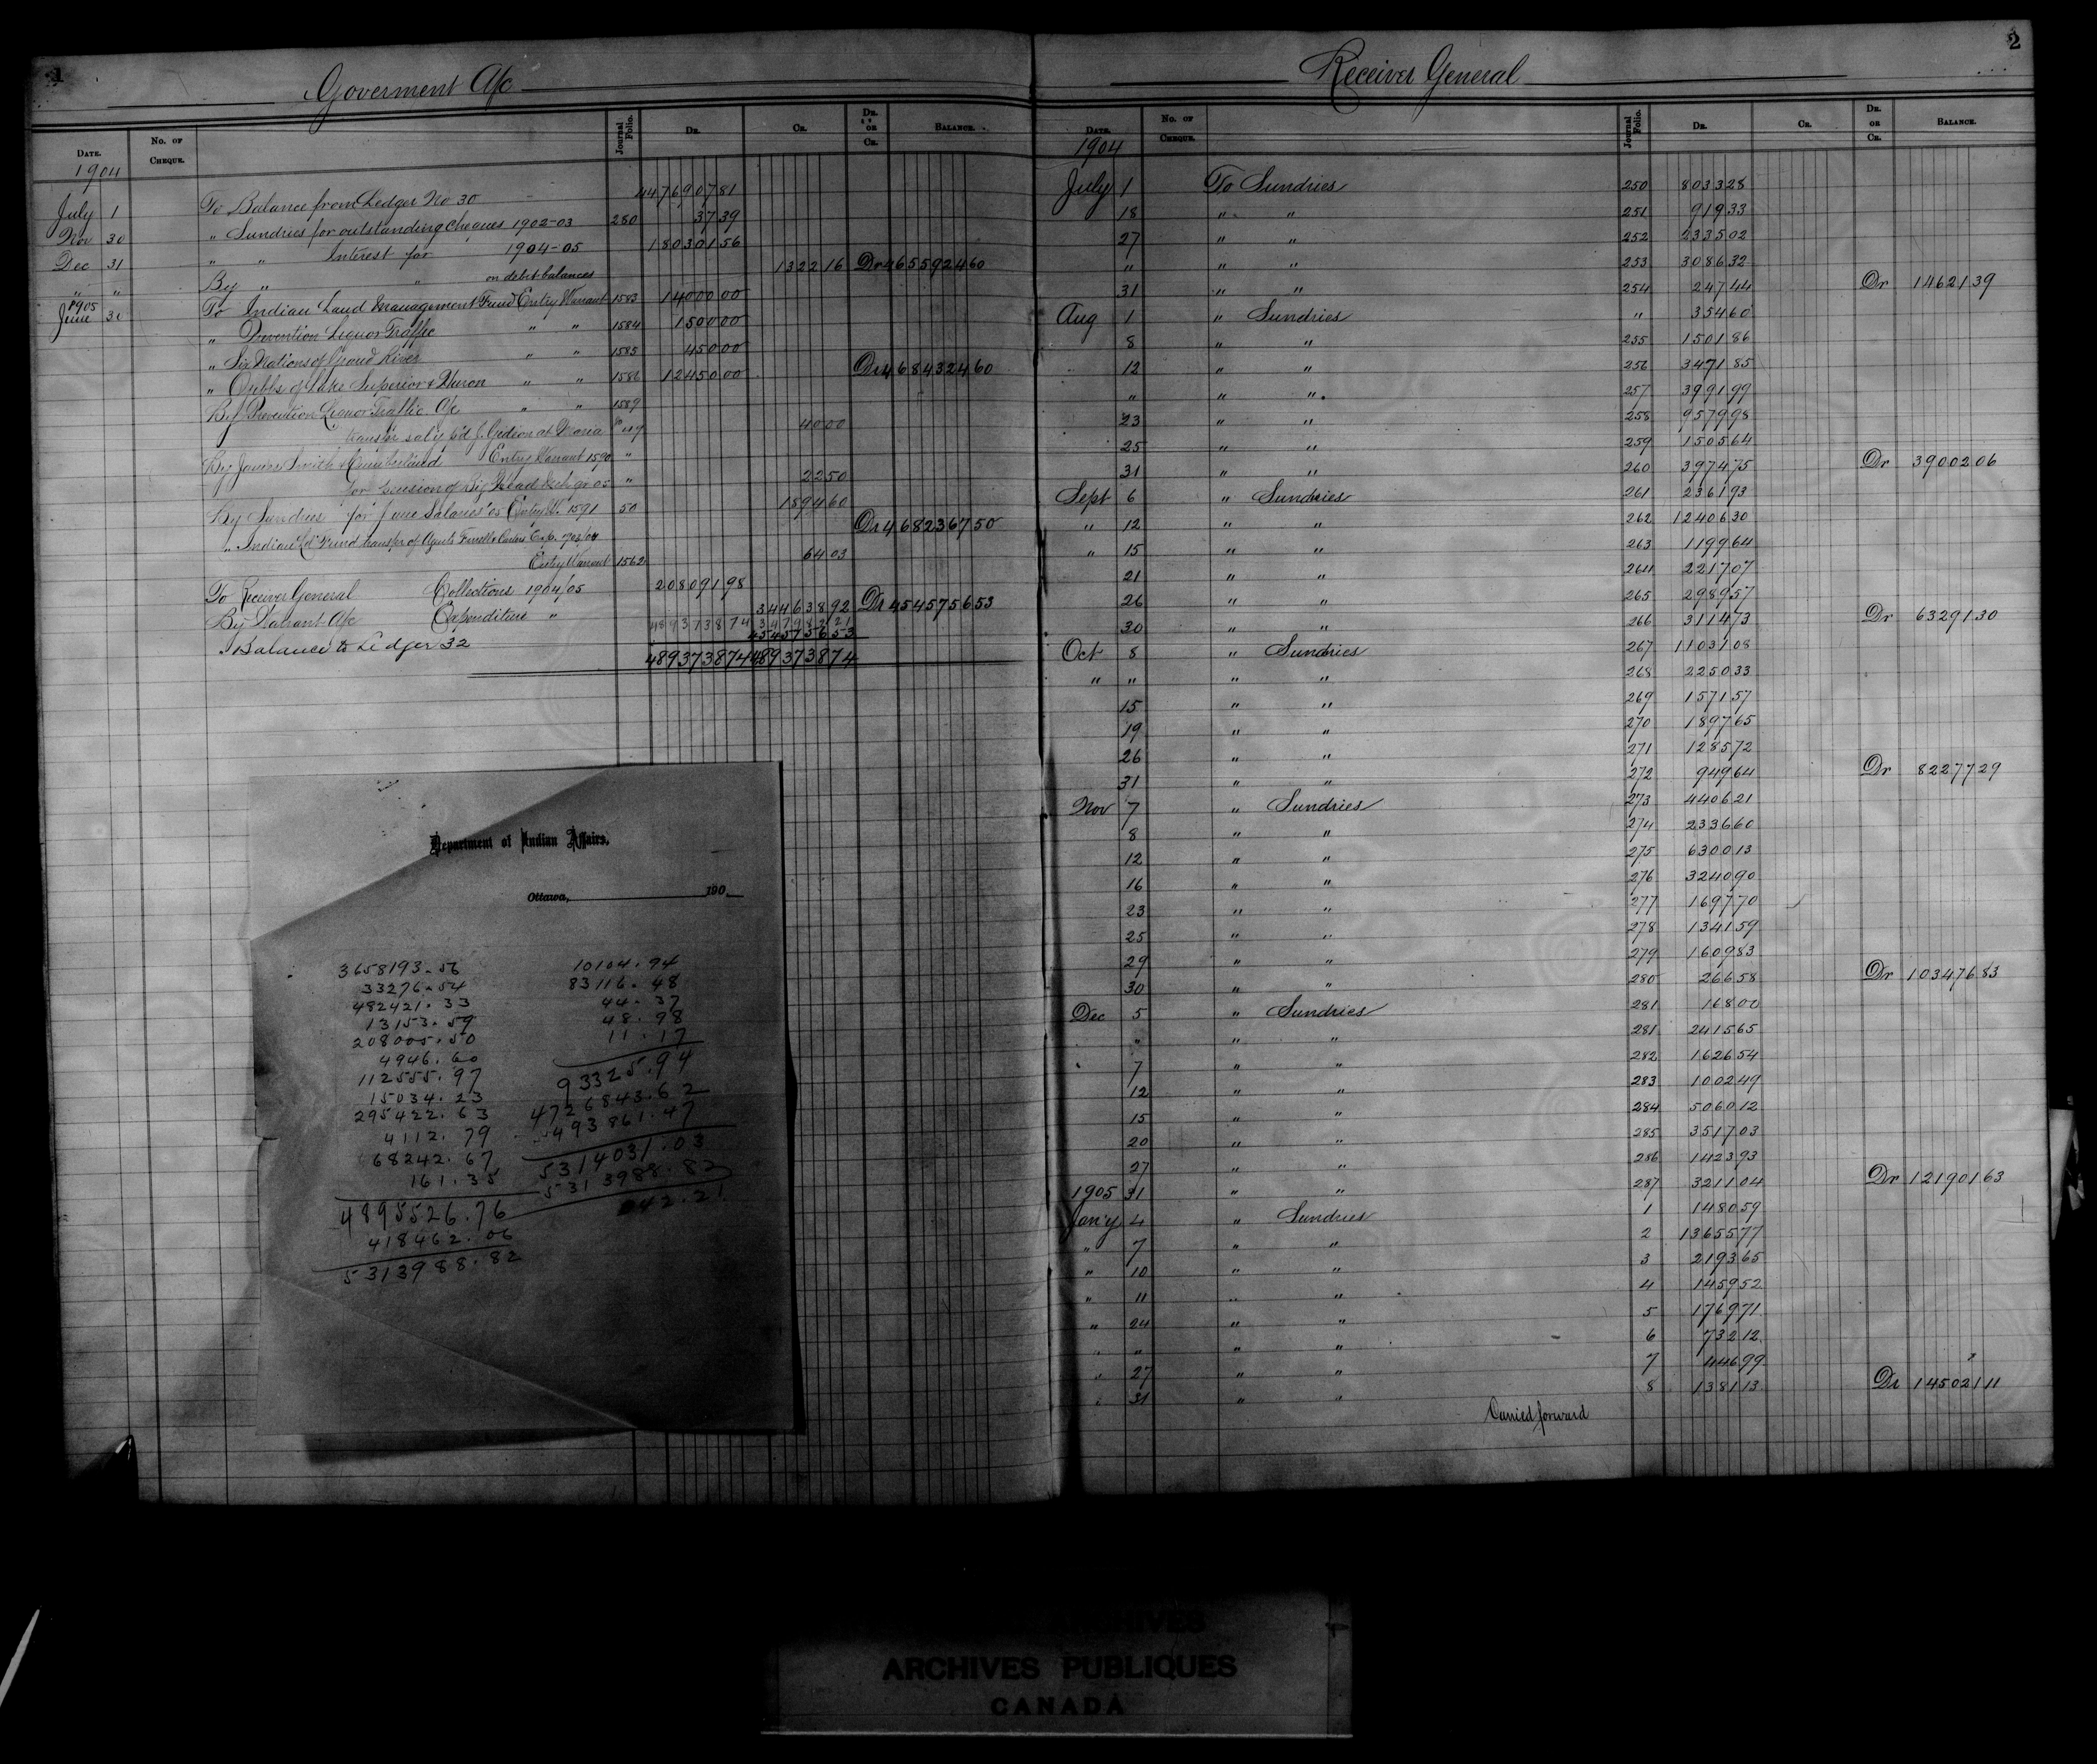 1
Goverment A/c
DATE. No. OF CHEQUE. Journal Folio. DR. CR. DR. OR CR. BALANCE.
1904
July 1 To Balance from Ledger No 30 447690781
Nov 30 " Sundries for outstanding cheques 1902-03 280 3739
Dec 31 " " Interest for 1904-05 18030156
" " By " " on debit balances 132216 Dr 465592460
1905
June 30 To Indian Land Management Fund Entry Warrant 1583 1400000
" Prevention Liquor Traffic " " 1584 150000
" Six Nations of Grand River " " 1585 45000
" Ojibbs of Lake Superior & Huron " " 1586 1245000 Dr 468432460
By Prevention Liquor Traffic A/c " " 1589
transfer sal'y p'd J. Gedion at Maria 4000
By James Smith & Cumberland Entry Warrant 1590 "
for " 2250
By Sundries for June Salaries '05 Entry W. 1591 50 189460
Dr 468236750
" Indian Ld Fund transfer of Agents
Entry Warrant 1562 6403
To Receiver General Collections 1904/05 20809198
By Warrant A/c Expenditure " 34463892 Dr 454575653
489373874 34798221
" Balance to Ledger 32 454575653
489373874 489373874
Department of Indian Affairs,
Ottawa, 190
3658193.56 10104.94
33276.54 83116.48
482421.33 44.37
13153.59 48.98
208005.50 11.17
4946.60 93325.94
112555.97 4726843.62
15034.23 493861.47
295422.63 5314031.03
4112.79 5313988.82
68242.67 042.21
161.35
4895526.76
418462.06
5313988.82
2
Receiver General
DATE. No. OF CHEQUE. Journal Folio. DR. CR. DR. OR CR. BALANCE.
1904
July 1 To Sundries 250 803328
18 " " 251 91933
27 " " 252 233502
" " " 253 308632
31 " " 254 24744 Dr 1462139
Aug 1 " Sundries " 35460
8 " " 255 150186
12 " " 256 347185
" " " 257 399199
23 " " 258 957998
25 " " 259 150564
31 " " 260 397475 Dr 3900206
Sept 6 " Sundries 261 236193
" 12 " " 262 1240630
" 15 " " 263 119964
21 " " 264 221707
26 " " 265 298957
30 " " 266 311473 Dr 6329130
Oct 8 " Sundries 267 1103108
" " " " 268 225033
15 " " 269 157157
19 " " 270 189765
26 " " 271 128572
31 " " 272 94964 Dr 8227729
Nov 7 " Sundries 273 440621
8 " " 274 233660
12 " " 275 630013
16 " " 276 324090
23 " " 277 169770
25 " " 278 134159
29 " " 279 160983
30 " " 280 26658 Dr 10347683
Dec 5 " Sundries 281 16800
" " " 281 241565
7 " " 282 162654
12 " " 283 100249
15 " " 284 506012
20 " " 285 351703
27 " " 286 142393
1905 31 " " 287 321104 Dr 12190163
Jan'y 4 " Sundries 1 148059
" 7 " " 2 1365577
" 10 " " 3 219365
" 11 " " 4 145952
" 24 " " 5 176971
" " " " 6 73212
" 27 " " 7 44699
" 31 " " 8 138113 Dr 14502111
Carried forward
ARCHIVES
ARCHIVES PUBLIQUES
CANADA